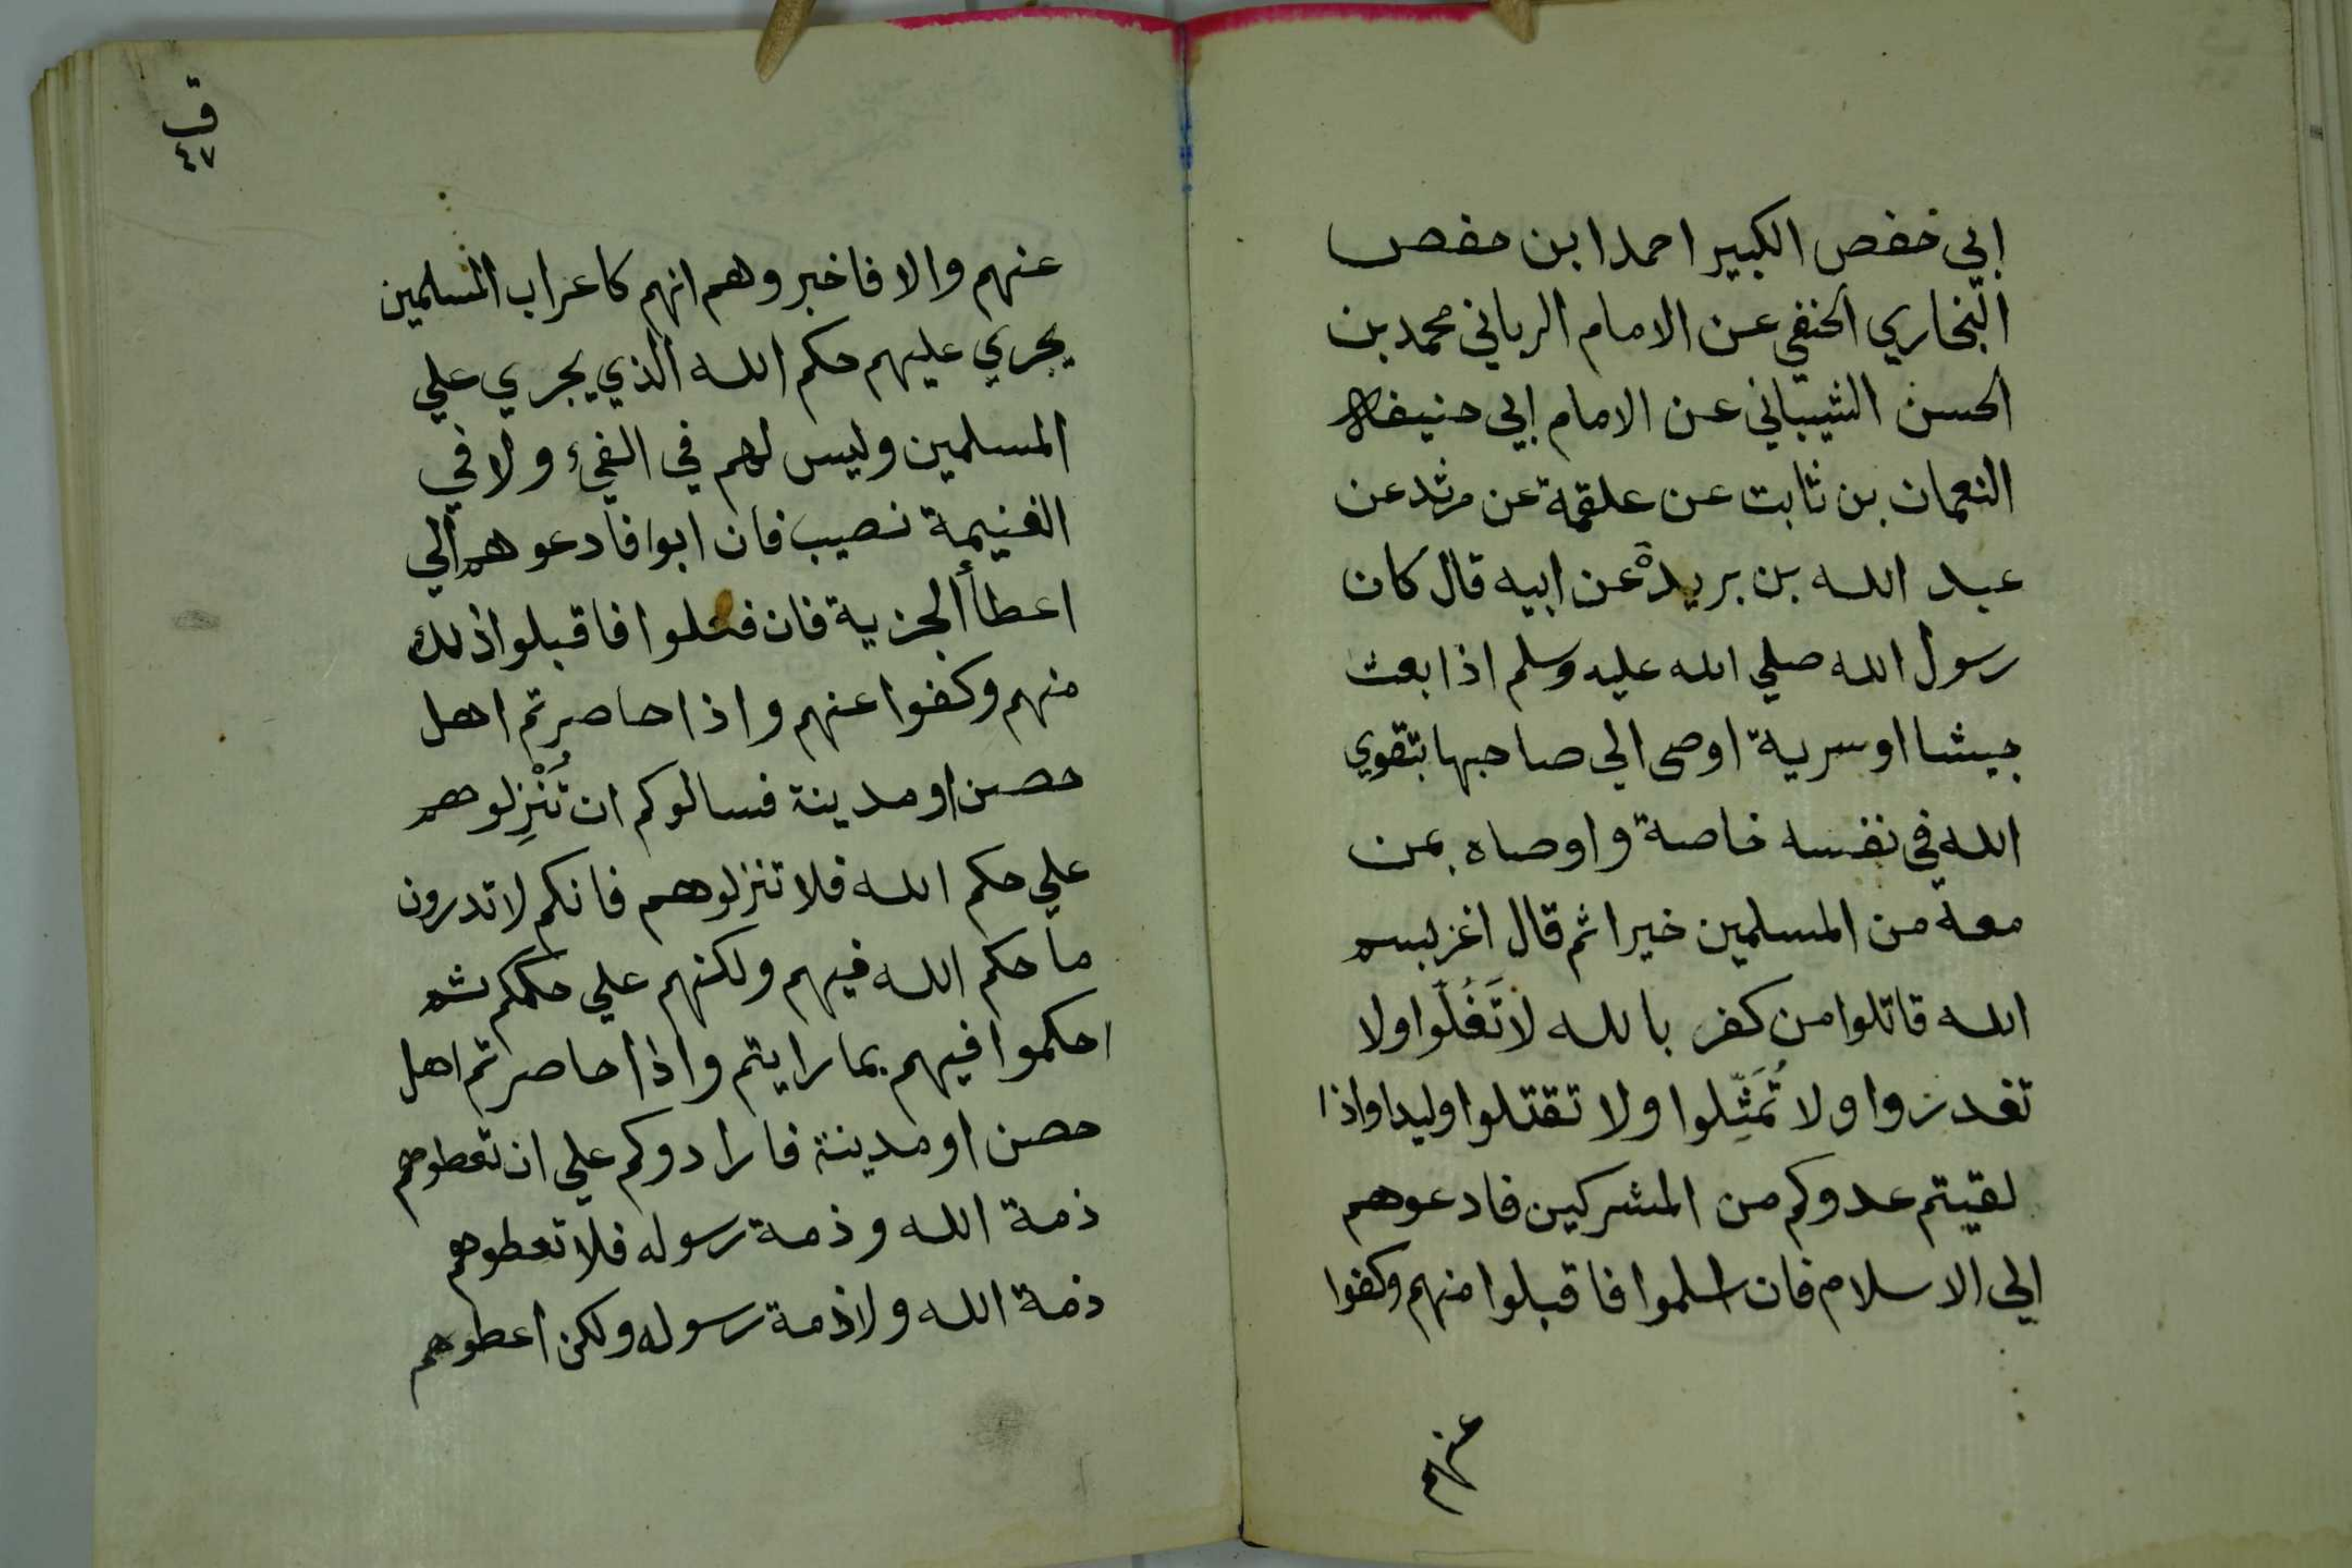 ابي خفص الكبير احمد ابن حفص
البخاري الحنفي عن الامام الرباني محمد بن
الحسن الشيباني عن الامام ابي حنيفة
النعمان بن ثابت عن علقمة عن مرثد عن
عبد الله بن بريدة عن ابيه قال كان
رسول الله صلي الله عليه وسلم اذا بعث
جيشا او سرية اوصى الي صاحبها بتقوي
الله في نفسه خاصة واوصاه بمن
معه من المسلمين خيرا ثم قال اغز بسم
الله قاتلوا من كفر بالله لا تَغُلّوا ولا
تغدروا ولا تُمَثِّلوا ولا تقتلوا وليدا واذا
لقيتم عدوكم من المشركين فادعوهم
الي الاسلام فان اسلموا فاقبلوا منهم وكفوا
عنهم
ق
٤٧
عنهم والا فاخبروهم انهم كاعراب المسلمين
يجري عليهم حكم الله الذي يجري علي
المسلمين وليس لهم في الفيء ولا في
الغنيمة نصيب فان ابوا فادعوهم الي
اعطأ الجزية فان فعلوا فاقبلوا ذلك
منهم وكفوا عنهم واذا حاصرتم اهل
حصن او مدينة فسالوكم ان تُنْزِلوهم
علي حكم الله فلا تنزلوهم فانكم لا تدرون
ما حكم الله فيهم ولكنهم علي حكمكم ثم
احكموا فيهم بما رايتم واذا حاصرتم اهل
حصن او مدينة فارادوكم علي ان تعطوهم
ذمة الله وذمة رسوله فلا تعطوهم
ذمة الله ولا ذمة رسوله ولكن اعطوهم